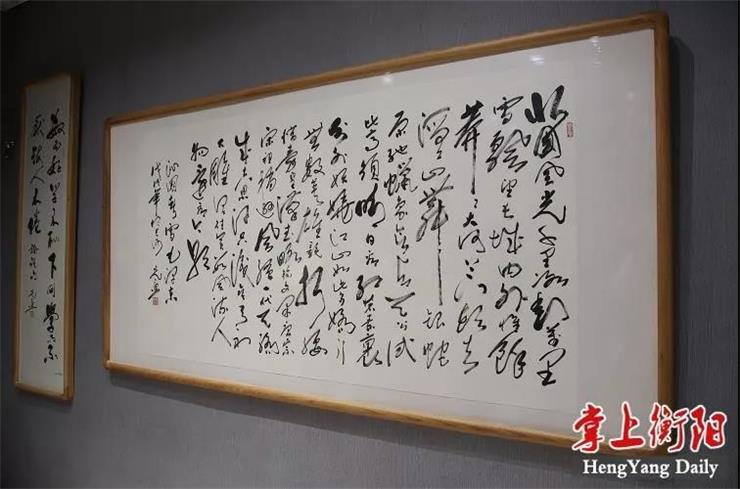 北国风光千里冰封万里
雪飘望长城内外惟余
莽莽大河上下顿失
滔滔山舞银蛇
原驰蜡象欲与天公试
比高须晴日看红装素裹
分外妖娆江山如此多娇引
无数英雄竞折腰
惜秦皇汉武略输文采唐宗
宋祖稍逊风骚一代天骄
成吉思汗只识弯弓射
大雕俱往矣数风流人
物还看今朝
沁园春雪毛泽东
戊戌年
敏而好学不耻下问学而不
厌诲人不倦
掌上衡阳
HengYang Daily